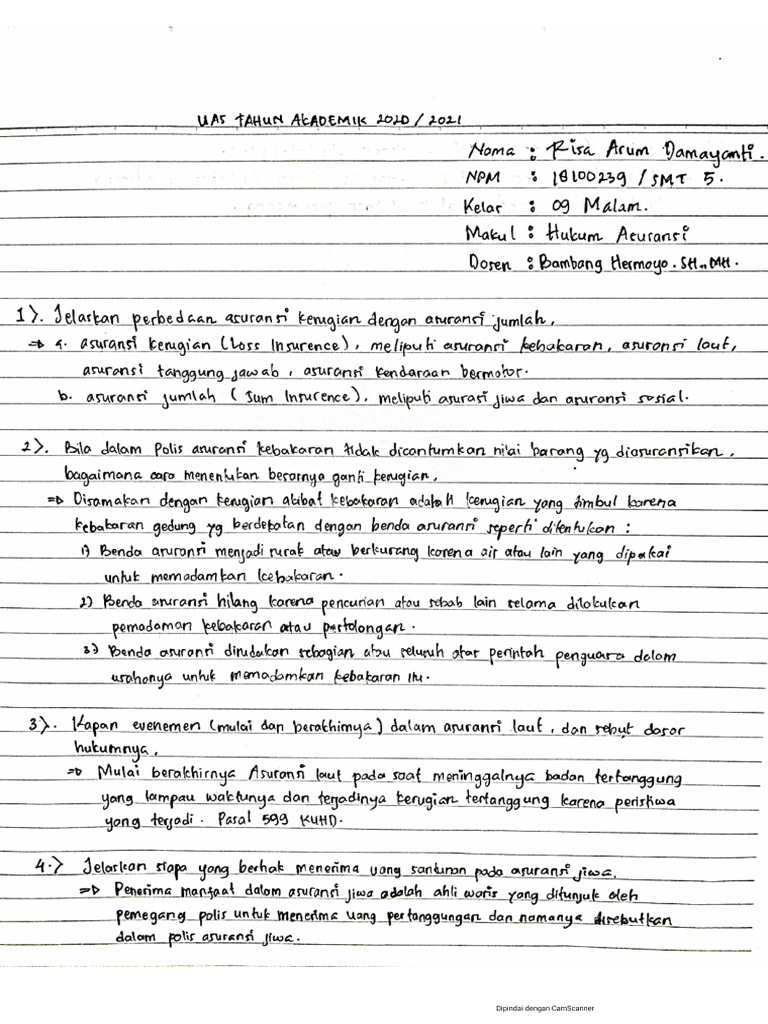 UAS TAHUN AKADEMIK 2020/2021
Nama : Risa Arum Damayanti.
NPM : 18100239 / SMT 5.
Kelas : 09 Malam.
Makul : Hukum Asuransi
Dosen : Bambang Hermoyo. SH., MH.
1). Jelaskan perbedaan asuransi kerugian dengan asuransi jumlah.
=> a. asuransi kerugian (Loss Insurence), meliputi asuransi kebakaran, asuransi laut,
asuransi tanggung jawab, asuransi kendaraan bermotor.
b. asuransi jumlah (Sum Insurence), meliputi asurasi jiwa dan asuransi sosial.
2). Bila dalam Polis asuransi kebakaran tidak dicantumkan nilai barang yg diasuransikan,
bagaimana cara menentukan besarnya ganti kerugian.
=> Disamakan dengan kerugian akibat kebakaran adalah kerugian yang timbul karena
kebakaran gedung yg berdekatan dengan benda asuransi seperti ditentukan :
1) Benda asuransi menjadi rusak atau berkurang karena air atau lain yang dipakai
untuk memadamkan kebakaran.
2) Benda asuransi hilang karena pencurian atau sebab lain selama dilakukan
pemadaman kebakaran atau pertolongan.
3) Benda asuransi dirusakan sebagian atau seluruh atas perintah penguasa dalam
usahanya untuk memadamkan kebakaran itu.
3). Kapan evenemen (mulai dan berakhirnya) dalam asuransi laut, dan sebut dasar
hukumnya.
=> Mulai berakhirnya Asuransi laut pada saat meninggalnya badan tertanggung
yang lampau waktunya dan terjadinya kerugian tertanggung karena peristiwa
yang terjadi. Pasal 599 KUHD.
4.) Jelaskan siapa yang berhak menerima uang santunan pada asuransi jiwa.
=> Penerima manfaat dalam asuransi jiwa adalah ahli waris yang ditunjuk oleh
pemegang polis untuk menerima uang pertanggungan dan namanya disebutkan
dalam polis asuransi jiwa.
Dipindai dengan CamScanner